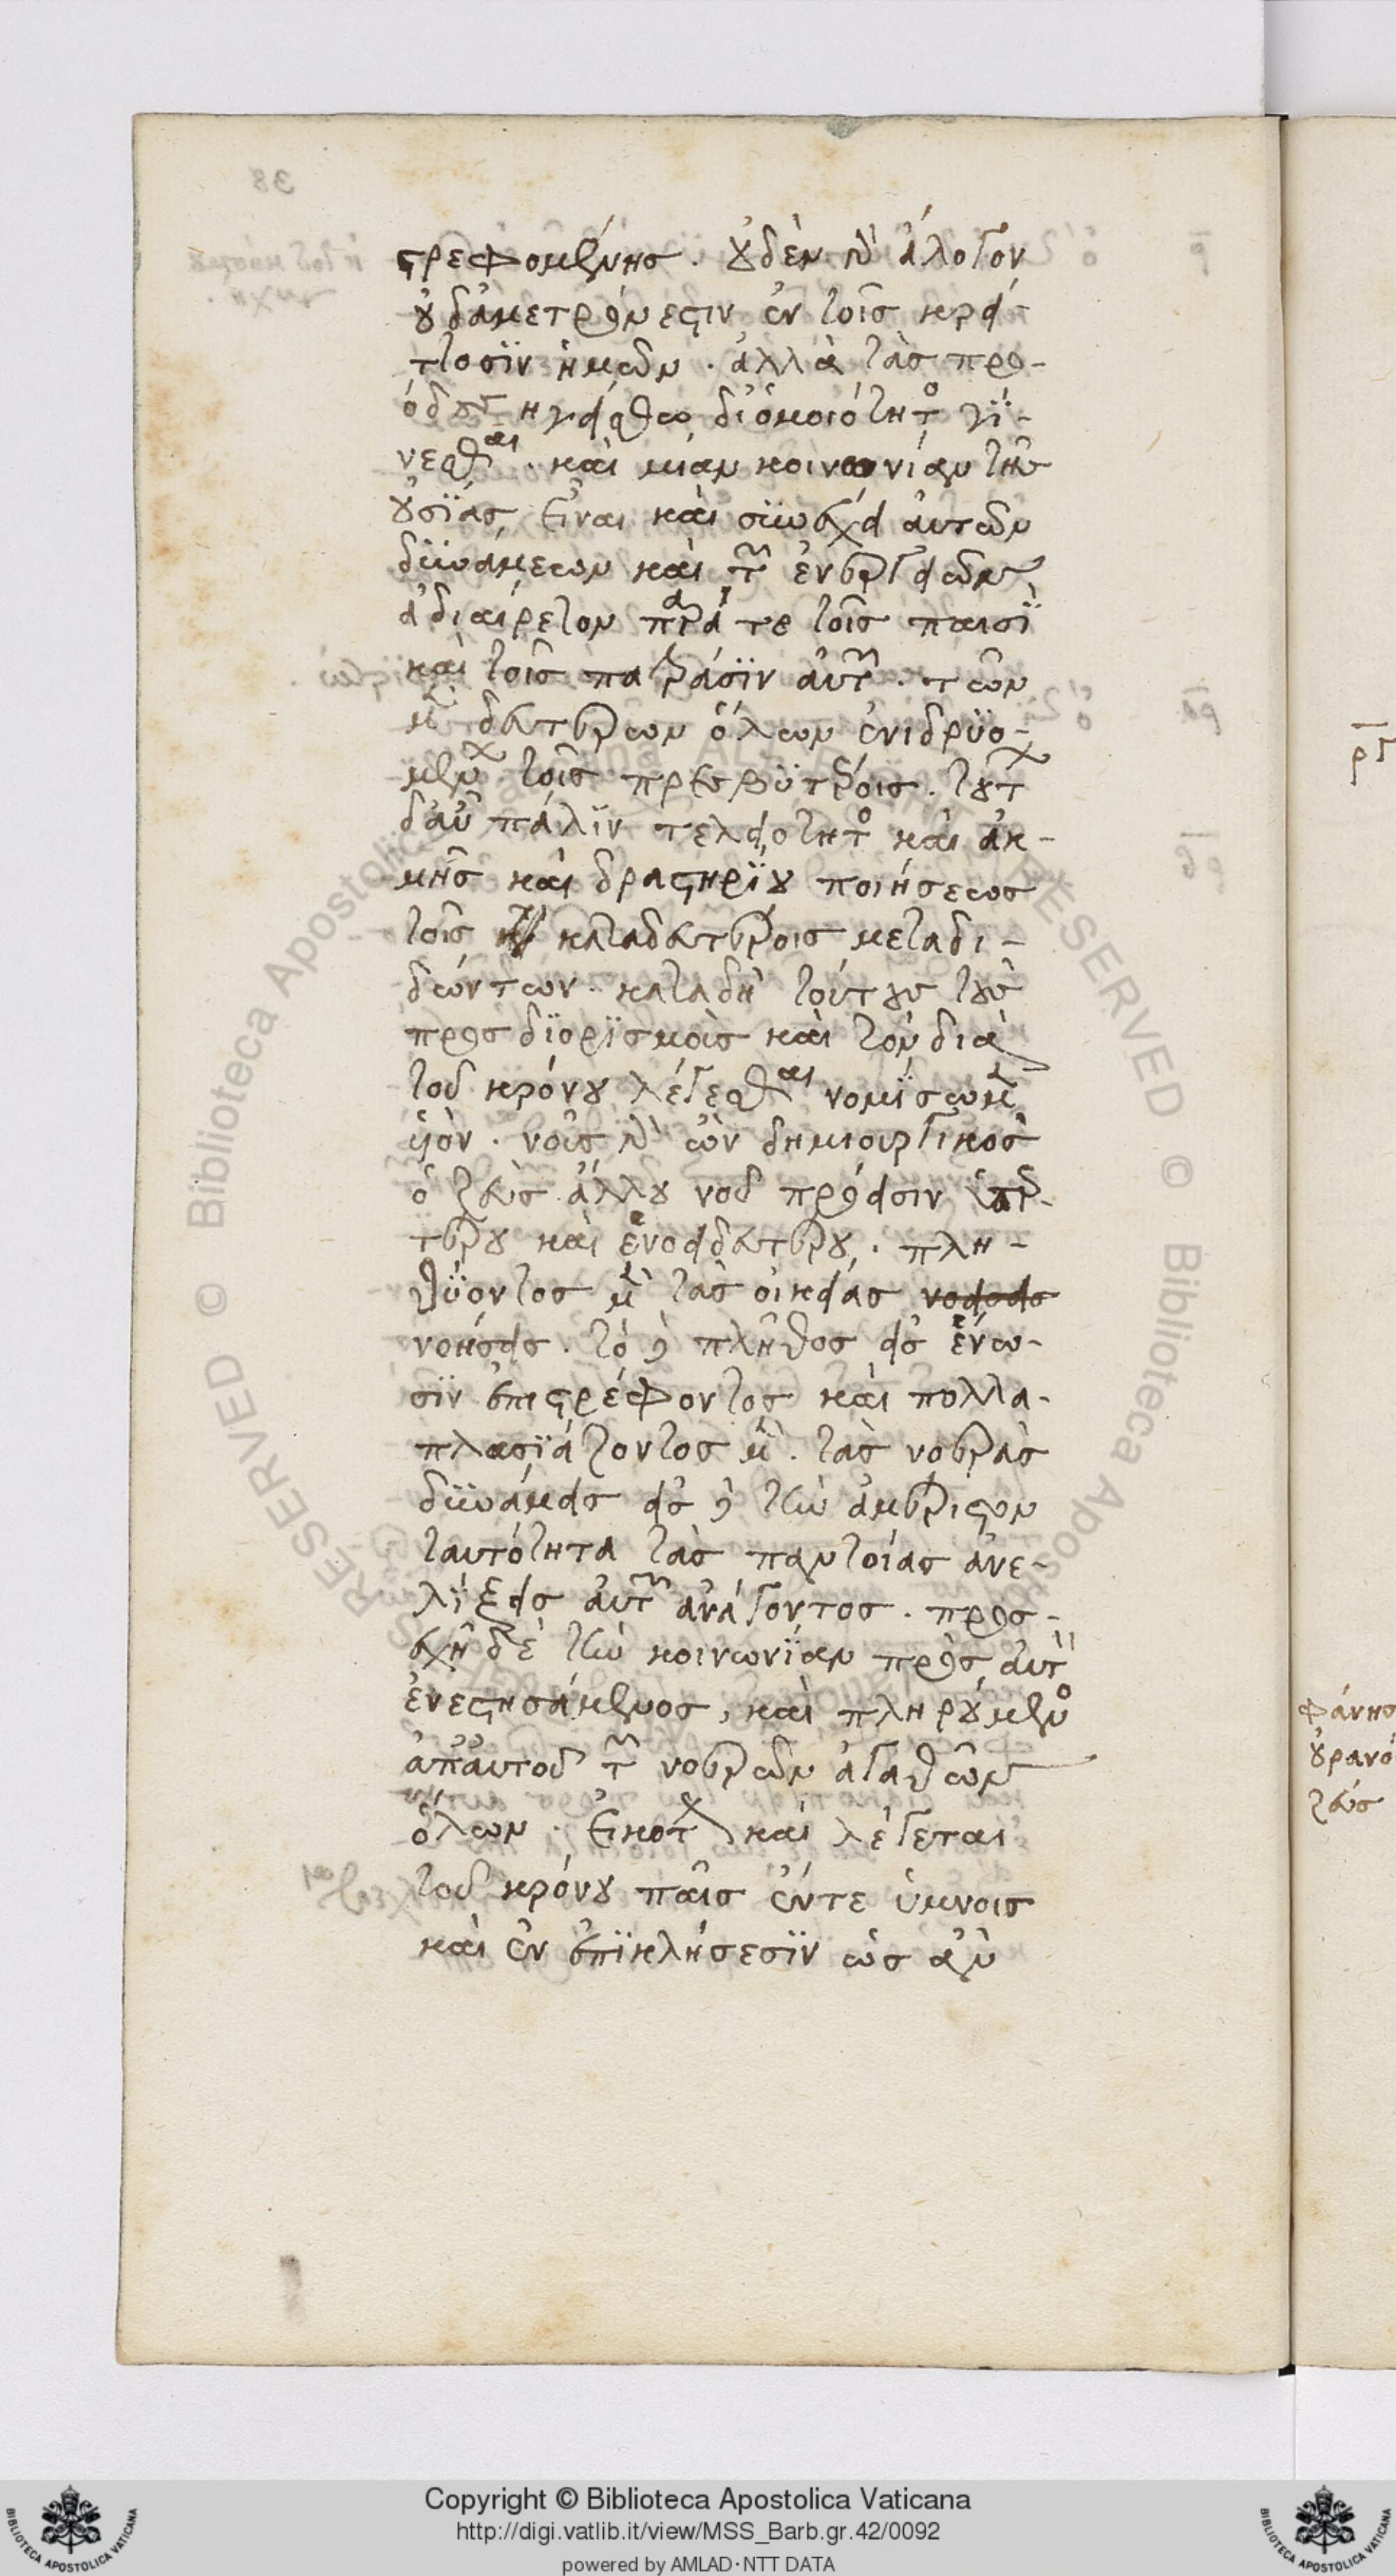 στρεφομένης. οὐδὲν γὰρ ἄλογον
οὐδ' ἄμετρόν ἐστιν ἐν τοῖς κρεί-
τοσϊν ἡμῶν. ἀλλὰ τὰς προ-
όδους ἡγεῖσθω δι' ὁμοιότητος γΐ-
νεσθαι. καὶ μίαν κοινωνίαν τῆς
οὐσΐας εἶναι καὶ συνέχεια αὐτῶν
δϋνάμεων καὶ τῶν ἐνεργειῶν
ἀδιαίρετον παρά τε τοῖς παισΐ
καὶ τοῖς πατράσϊν αὐτῶν. τῶν
μὲν δευτέρων ὅλων ἐνιδρϋο-
μένων τοῖς πρεσβϋτέροις. τούτων
δ' αὖ πάλϊν τελειότητος καὶ ἀκ-
μῆς καὶ δραστηρΐου ποιήσεως
τοῖς καταδευτέροις μεταδι-
δώντων. κατὰ δὴ τούτους τοὺς
προσδϊορϊσμοὺς καὶ τὸν δία
τοῦ κρόνου λέγεσθαι νομΐσωμεν
υἱόν. νοῦς γὰρ ὢν δημιουργικὸς
ὁ ζεὺς ἄλλου νοῦ πρόεισιν ὑπερ-
τέρου καὶ ἑνοειδευτέρου. πλη-
θϋοντος μὲν τὰς οἰκείας νοεσεις
νοήσεις. τὸ δὲ πλῆθος εἰς ἕνω-
σϊν ἐπιστρέφοντος καὶ πολλα-
πλασϊάζοντος μὲν. τὰς νοερὰς
δϋνάμεις εἰς δὲ τὴν ἀμέριστον
ταυτότητα τὰς παντοίας ἀνε-
λΐξεις αὐτῶν ἀνάγοντος. προσ-
εχῆ δὲ τὴν κοινωνΐαν πρὸς αὐτὸν
ἐνεστησάμενος, καὶ πληρούμενος
ἀπ' αὐτοῦ τῶν νοερῶν ἀγαθῶν
ὅλων. εἰκότως καὶ λέγεται
τοῦ κρόνου παῖς ἔν τε ὕμνοις
καὶ ἐν ἐπϊκλήσεσϊν ὡς ἂν
φάνης
οὐρανό
ζεύς
Copyright © Biblioteca Apostolica Vaticana
http://digi.vatlib.it/view/MSS_Barb.gr.42/0092
powered by AMLAD·NTT DATA